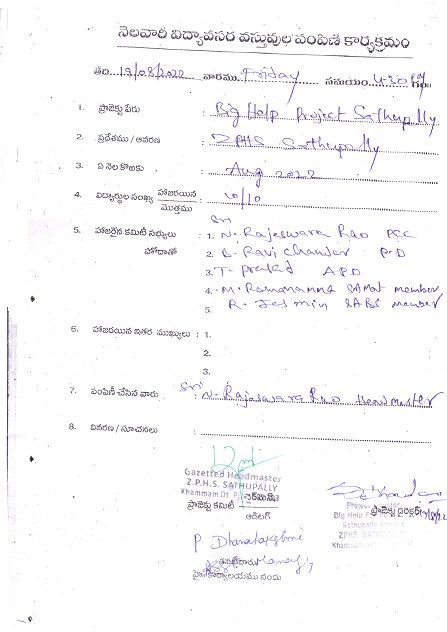 నెలవారీ విద్యావసర వస్తువుల పంపిణీ కార్యక్రమం
తేది 19/08/2022 వారము Friday సమయం 4-30 గం॥
1. ప్రాజెక్టు పేరు : Big Help Project Sathupally
2. ప్రదేశము / ఆవరణ : ZPHS Sathupally
3. ఏ నెల కొఱకు : Aug 2022
4. విద్యార్థుల సంఖ్య హాజరయిన / మొత్తము : 10/10
5. హాజరైన కమిటీ సభ్యులు హోదాతో : Sri
1. N. Rajeswara Rao PCC
2. B. Ravi Chander P-D
3. T. APD
4. M. Ramanamma SAMat member
5. R. Jesmin SABS member
6. హాజరయిన ఇతర ముఖ్యులు : 1.
2.
3.
7. పంపిణీ చేసిన వారు : Sri N. Rajeswara Rao Headmaster
8. వివరణ / సూచనలు :
Gazetted Headmaster
Z.P.H.S. SATHUPALLY
Khammam Dt.
ప్రాజెక్టు కమిటీ చైర్మన్
ఆడిటర్
ప్రాజెక్టు డైరెక్టర్
Big Help
Sathupally
ZPHS.
Khammam
P.
హై కార్యాలయము నందు